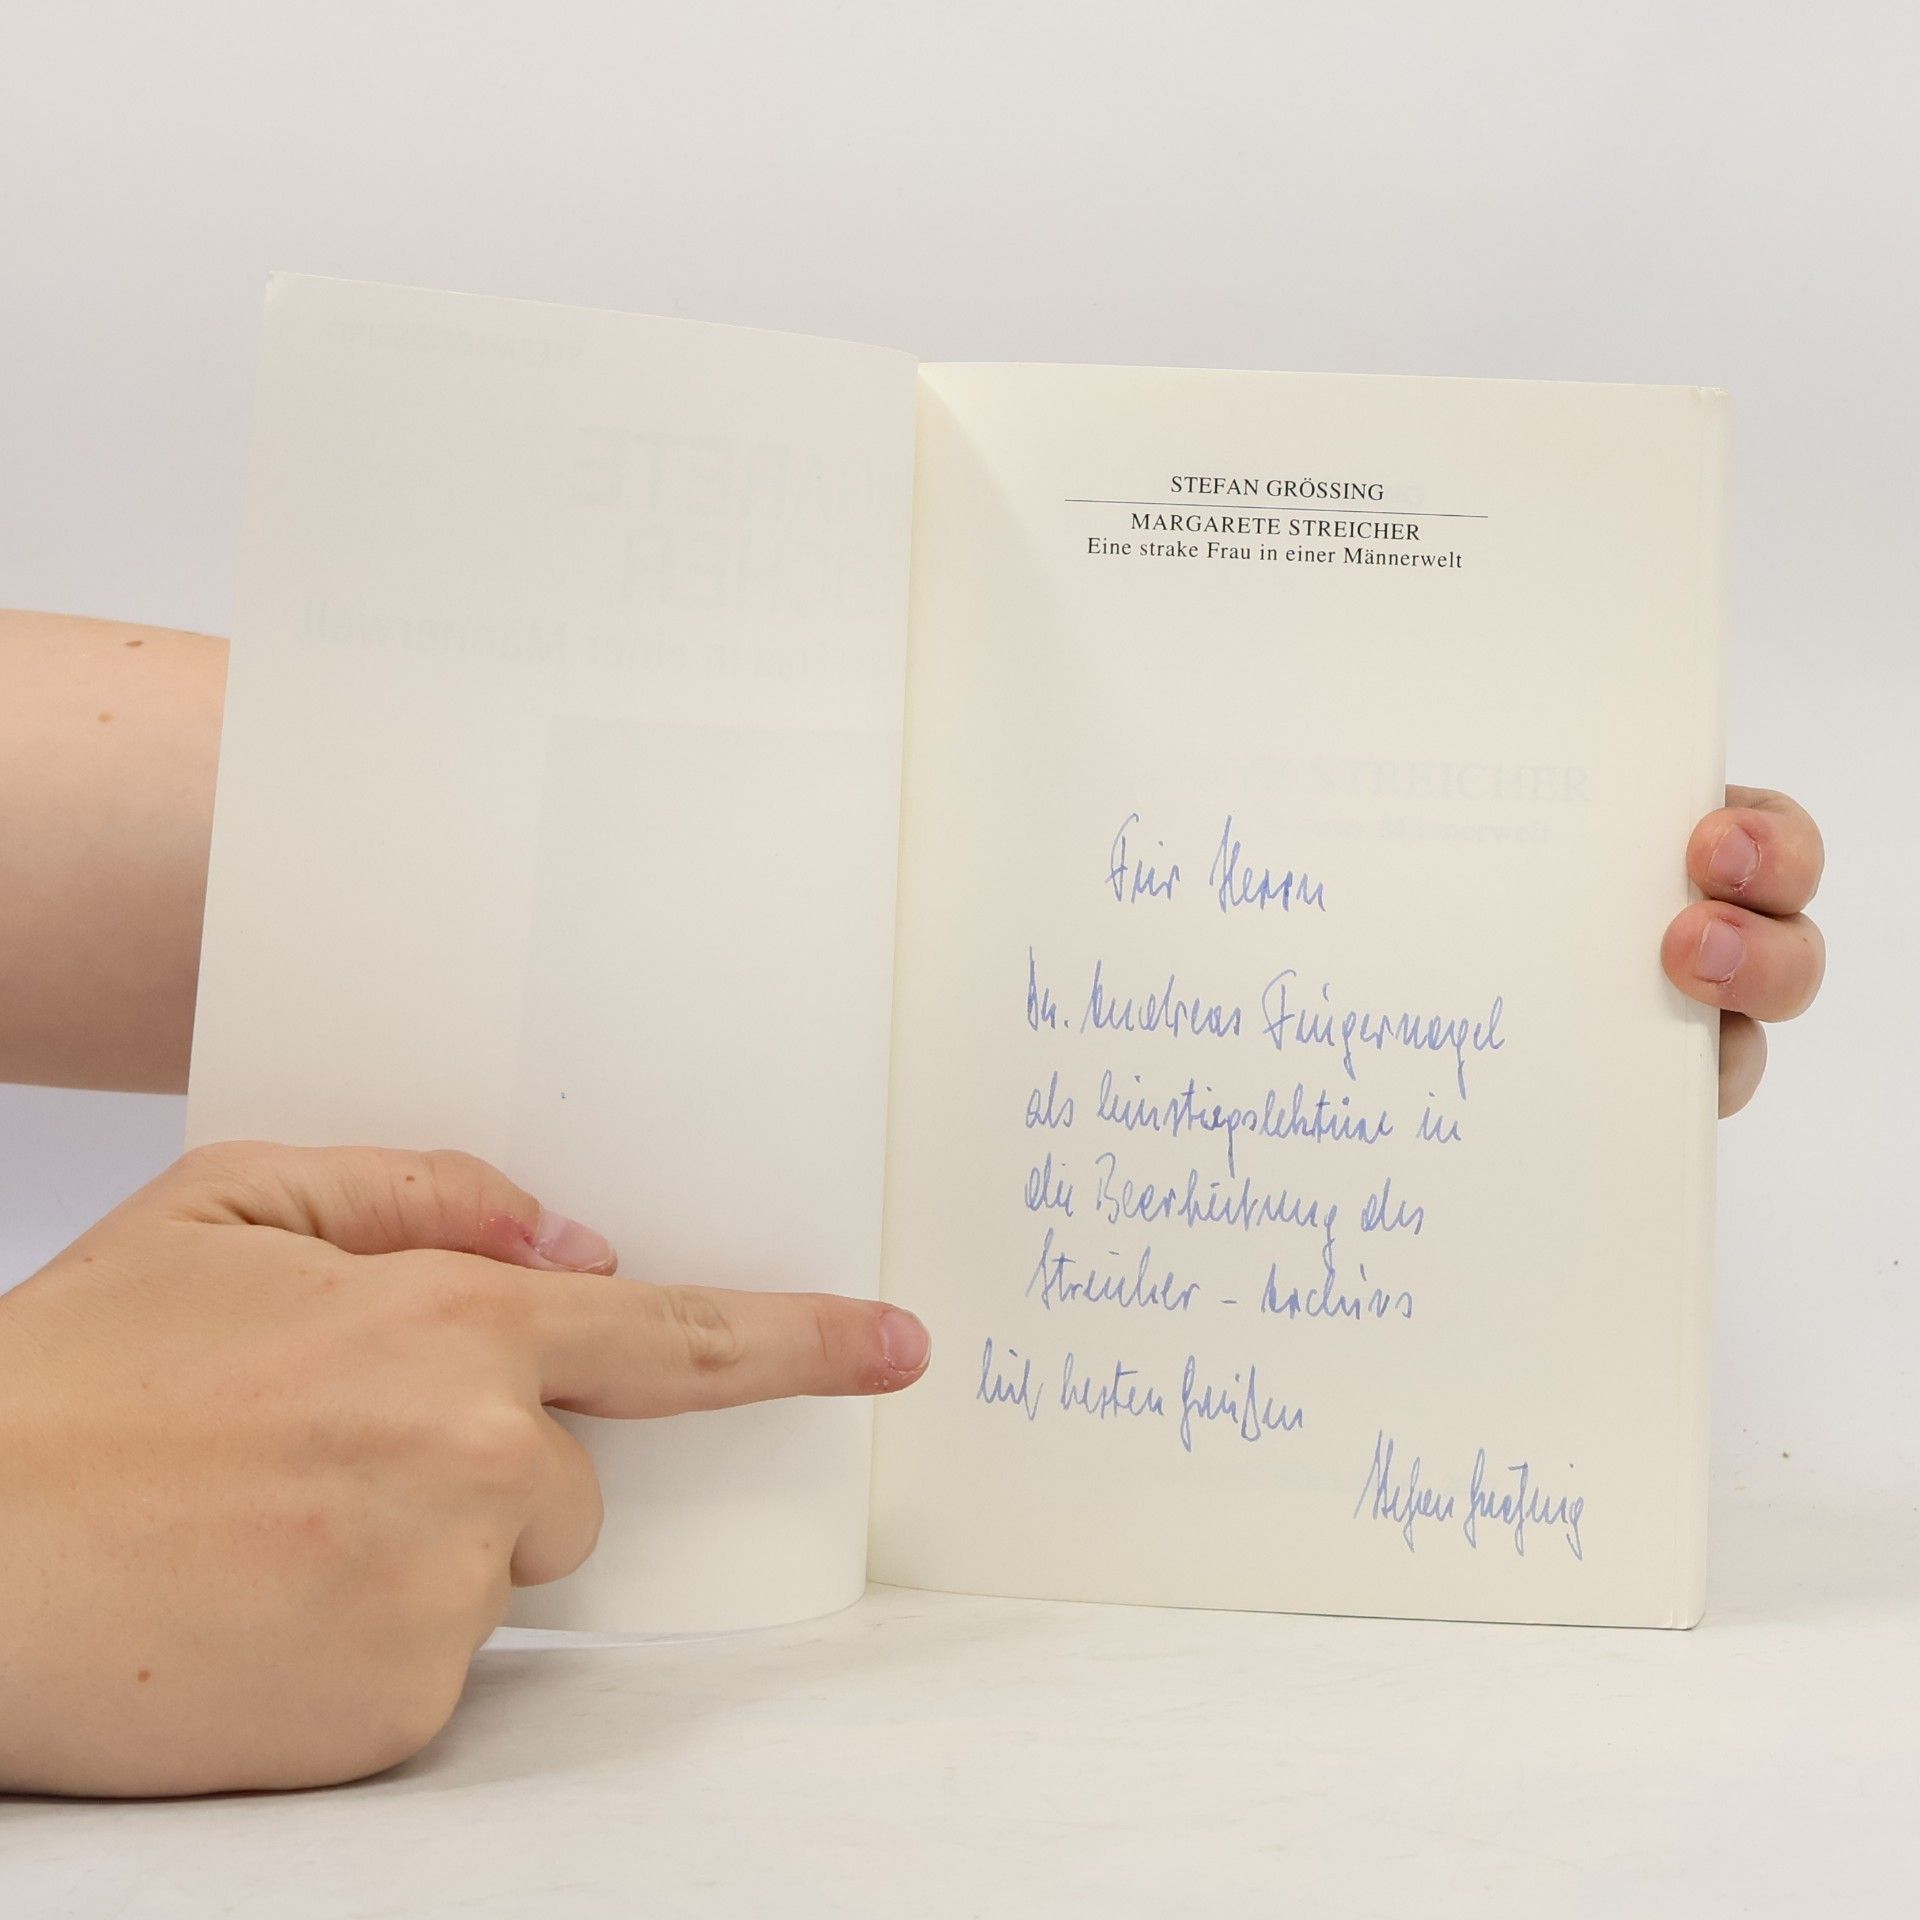 STEFAN GRÖSSING
MARGARETE STREICHER
Eine strake Frau in einer Männerwelt
STREICHER
Männerwelt
Für Herrn
Dr. Andreas Fingernagel
als Einstiegslektüre in
die Bearbeitung des
Streicher – Archivs
Mit besten Grüßen
Stefan Größing